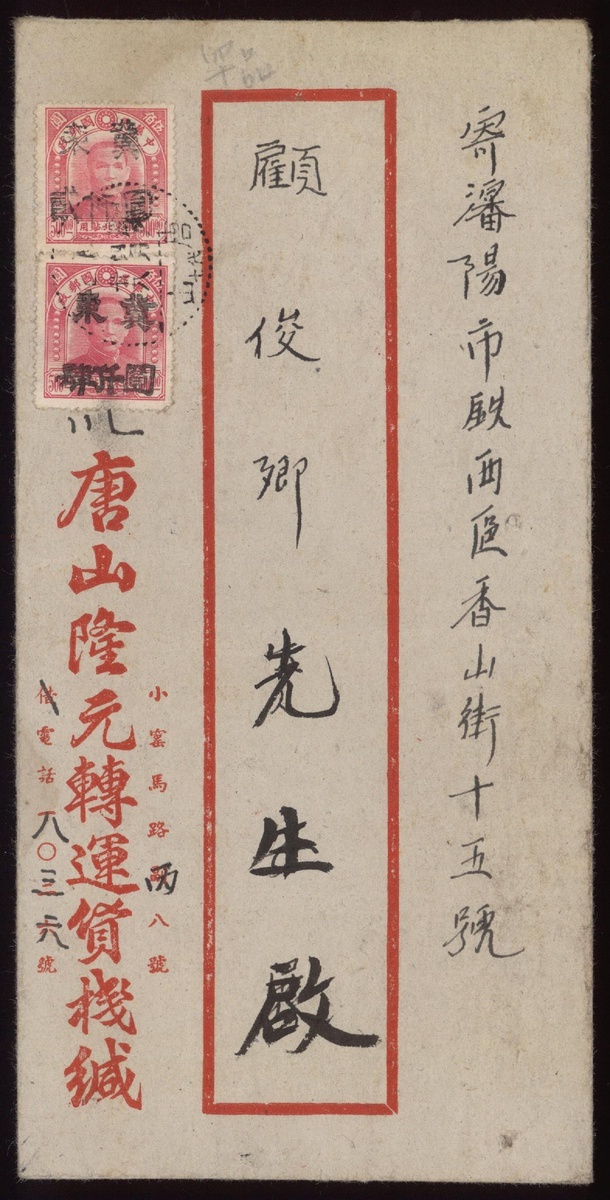 寄瀋陽市鉄西區香山街十五號
顧俊卿先生啟
小窯馬路丙八號
唐山隆元轉運貨機緘
借電話八〇三六號
冀東
貳仟圓
冀東
肆仟圓